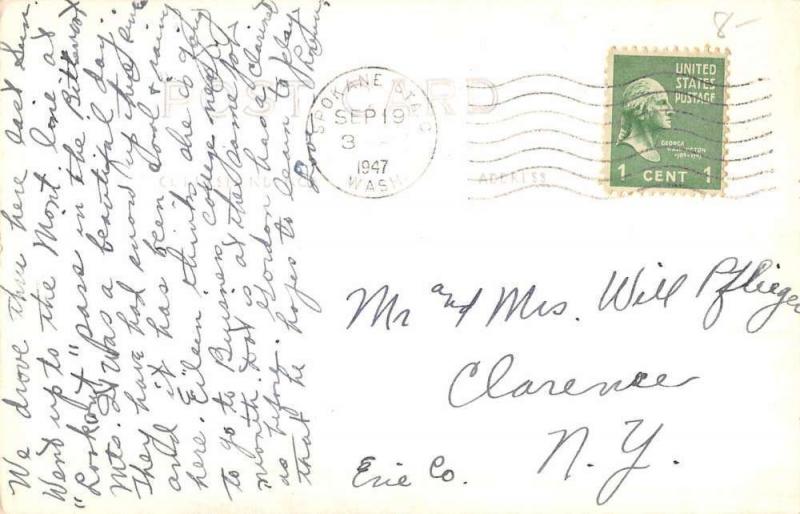 We drove thru here last Sun.
Went up to the Mont. line at
"Lookout" pass in the Bitteroot
Mts. It was a beautiful day.
They have had snow up there since
and it has been cool & rainy
here. Eileen thinks she is going
to go to Business college next
month. Dot is at the same job
as before. Gordon has a clarinet
that he hopes to learn to play
Love
8-
POST CARD
SPOKANE STA. C
SEP 19
3
1947
WASH.
ADDRESS
UNITED
STATES
POSTAGE
GEORGE
WASHINGTON
1 CENT 1
Mr and Mrs. Will Pflieger
Clarence
N.Y.
Erie Co.